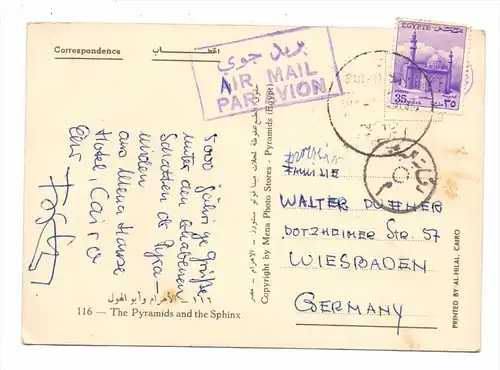 Correspondence
الخطاب
بريد جوى
AIR MAIL
PAR AVION
EGYPTE
35
٣٥
5000 jährige Grüße
unter den erhabenen
Schatten der Pyra-
miden
aus Mena House
Hotel Cairo
FAMILIE
WALTER
DOTZHEIMER Str. 57
WIESBADEN
GERMANY
Copyright by Mena Photo Stores - Pyramids (Egypt)
PRINTED BY: AL-HILAL, CAIRO
الأهرام وأبو الهول
116 — The Pyramids and the Sphinx